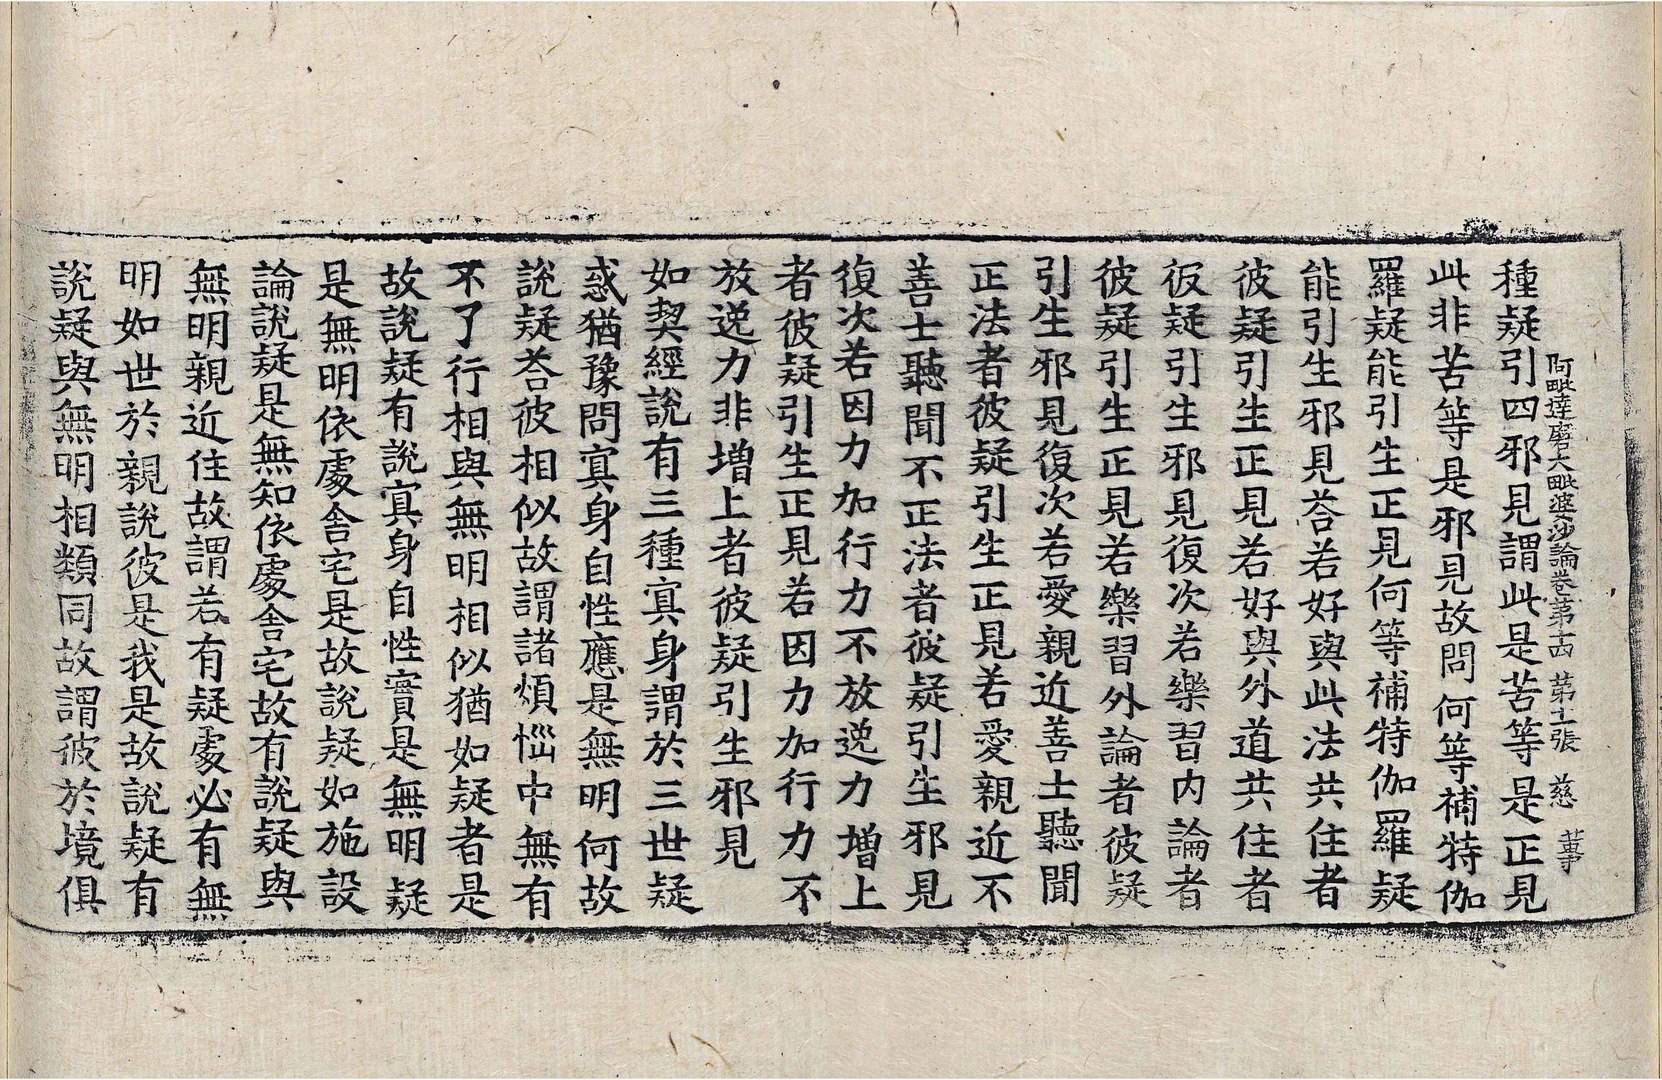 阿毗達磨大毗婆沙論卷第十四 第十二張 慈 董事
種疑引四邪見謂此是苦等是正見
此非苦等是邪見故問何等補特伽
羅疑能引生正見何等補特伽羅疑
能引生邪見荅若好與此法共住者
彼疑引生正見若好與外道共住者
彼疑引生邪見復次若樂習内論者
彼疑引生正見若樂習外論者彼疑
引生邪見復次若愛親近善士聽聞
正法者彼疑引生正見若愛親近不
善士聽聞不正法者彼疑引生邪見
復次若因力加行力不放逸力增上
者彼疑引生正見若因力加行力不
放逸力非增上者彼疑引生邪見
如契經說有三種㝠身謂於三世疑
惑猶豫問㝠身自性應是無明何故
說疑荅彼相似故謂諸煩惱中無有
不了行相與無明相似猶如疑者是
故說疑有說㝠身自性實是無明疑
是無明依處舍宅是故說疑如施設
論說疑是無知依處舍宅故有說疑與
無明親近住故謂若有疑處必有無
明如世於親說彼是我是故說疑有
說疑與無明相類同故謂彼於境俱